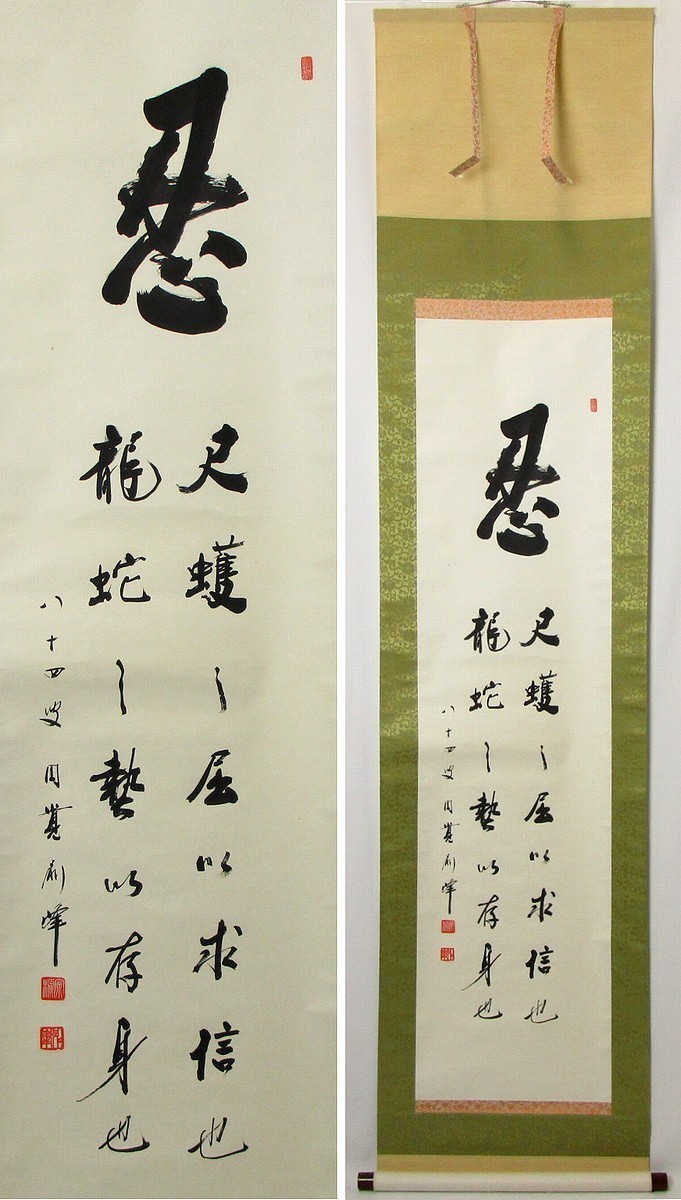 忍
尺蠖之屈以求信也
龍蛇之蟄以存身也
八十四叟 円覺別峰
忍
尺蠖之屈以求信也
龍蛇之蟄以存身也
八十四叟 円覺別峰